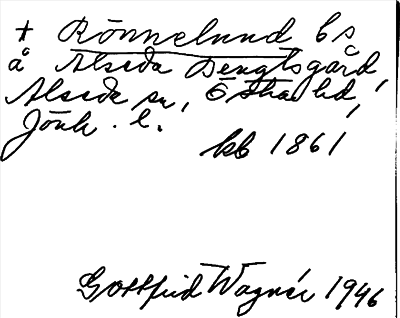 * Rönnelund bs
å Alseda Bengtsgård,
Alseda sn, Östra hd,
Jönk. l.
kb 1861
Gottfrid Wagnér 1946